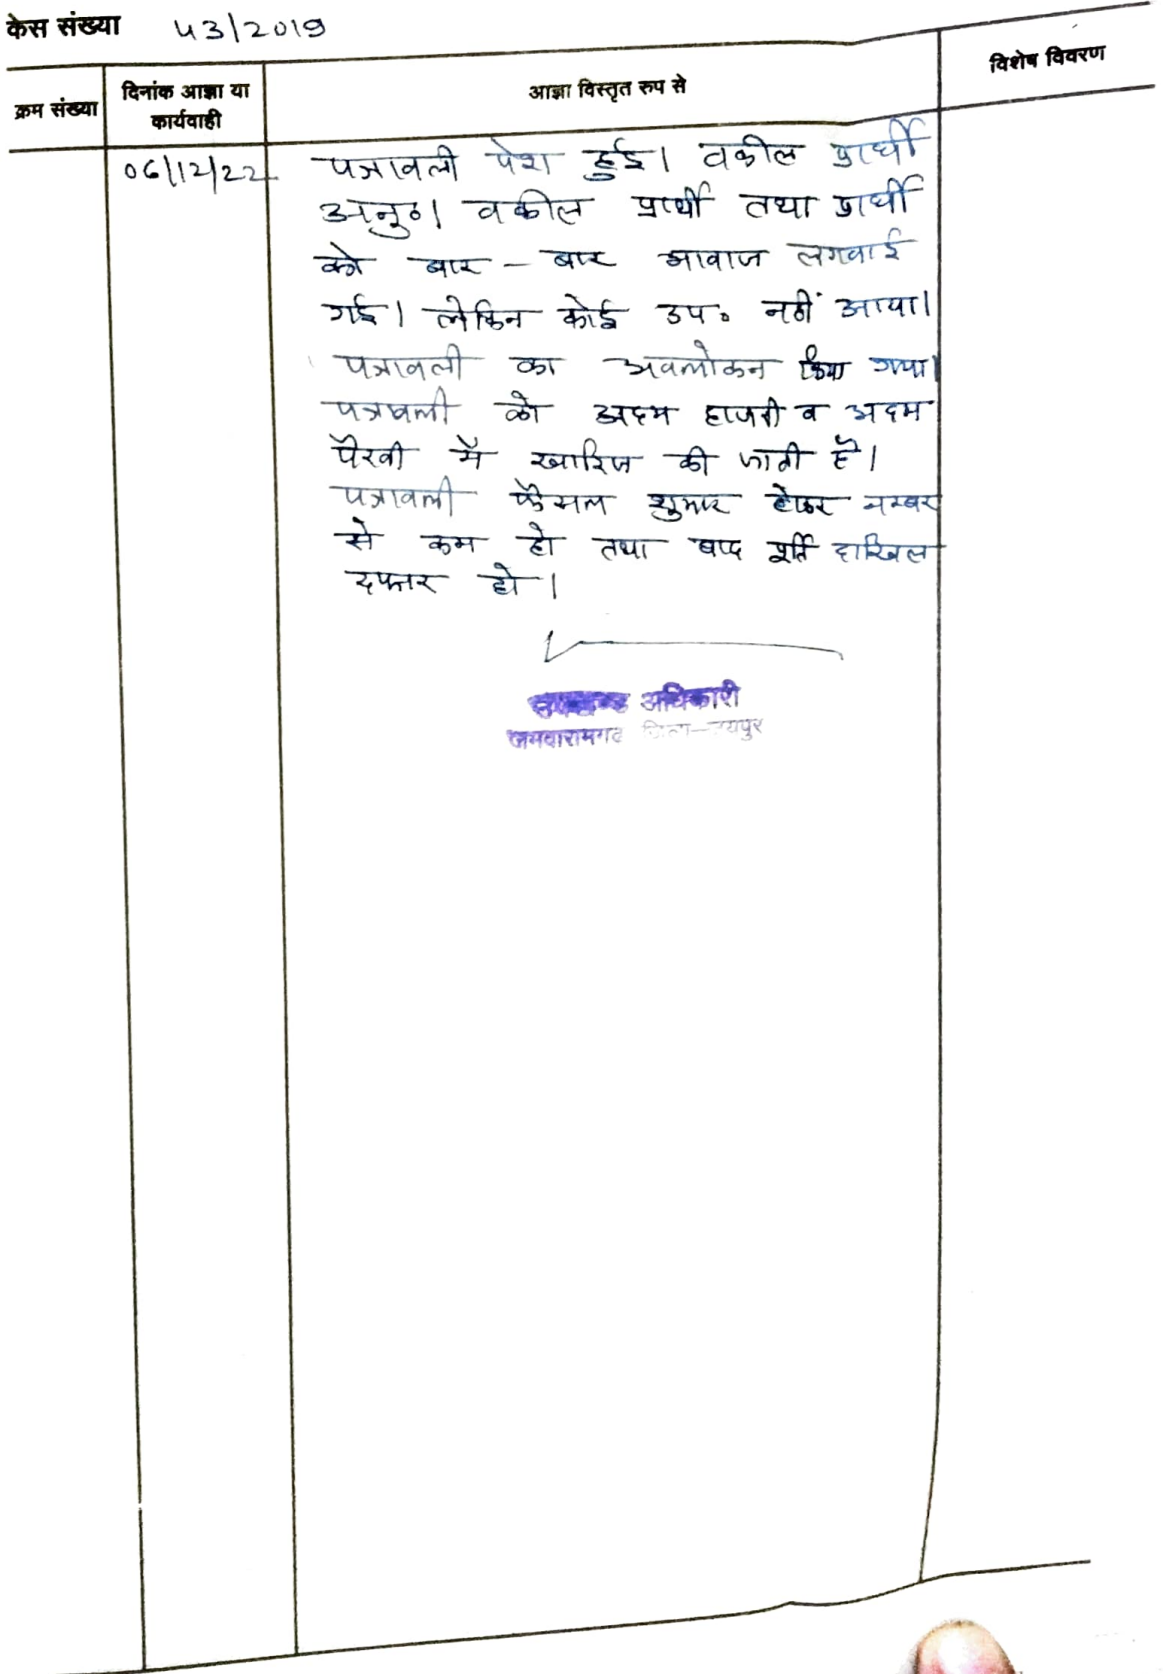 केस संख्या 43/2019
क्रम संख्या
दिनांक आज्ञा या
कार्यवाही
आज्ञा विस्तृत रुप से
विशेष विवरण
06/12/22
पत्रावली पेश हुई। वकील प्रार्थी
अनु०। वकील प्रार्थी तथा प्रार्थी
को बार - बार आवाज लगवाई
गई। लेकिन कोई उप० नहीं आया।
पत्रावली का अवलोकन किया गया।
पत्रावली को अदम हाजरी व अदम
पैरवी मै खारिज की जाती है।
पत्रावली फैसल शुमार होकर नम्बर
से कम हो तथा बाद पूर्ति दाखिल
दफ्तर हो।
उपखण्ड अधिकारी
जमवारामगढ जिला-जयपुर